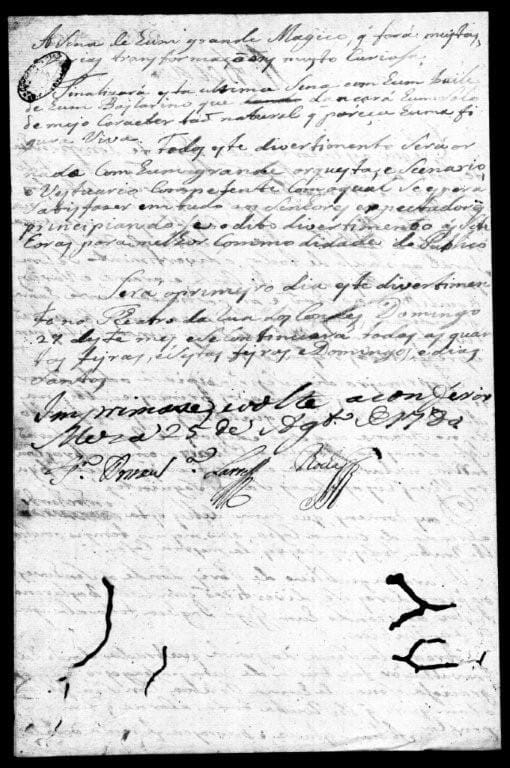 A Sena de hum grande Magico, q̃ fará muytas,
rias transformaçois muyto Curiosa,
Finalizará esta ultima Sena com hum Baile
de hum Bajlarino que dançará hum Solo
de mejo Caracter tão natural q pareça huma fi
gura Viva.
Todo este divertimento Será or
nado Com hum grande orquesta, e Scenario
e Vestuario Competente Com aqual Se espera
Satisfazer em tudo aos Senhores expectadores
principiando, e o dito divertimento ás
horas, para melhor Commodidade do Publico
Será o primeyro dia este divertimen
to no Theatro da Rua dos Condes Domingo
27 deste mes, e Se Continuará todas as quar
tas feyras, e Sestas feyras e Domingos, e dias
Santos
Imprimase, e volte a conferir
Meza 25 de Agt.º